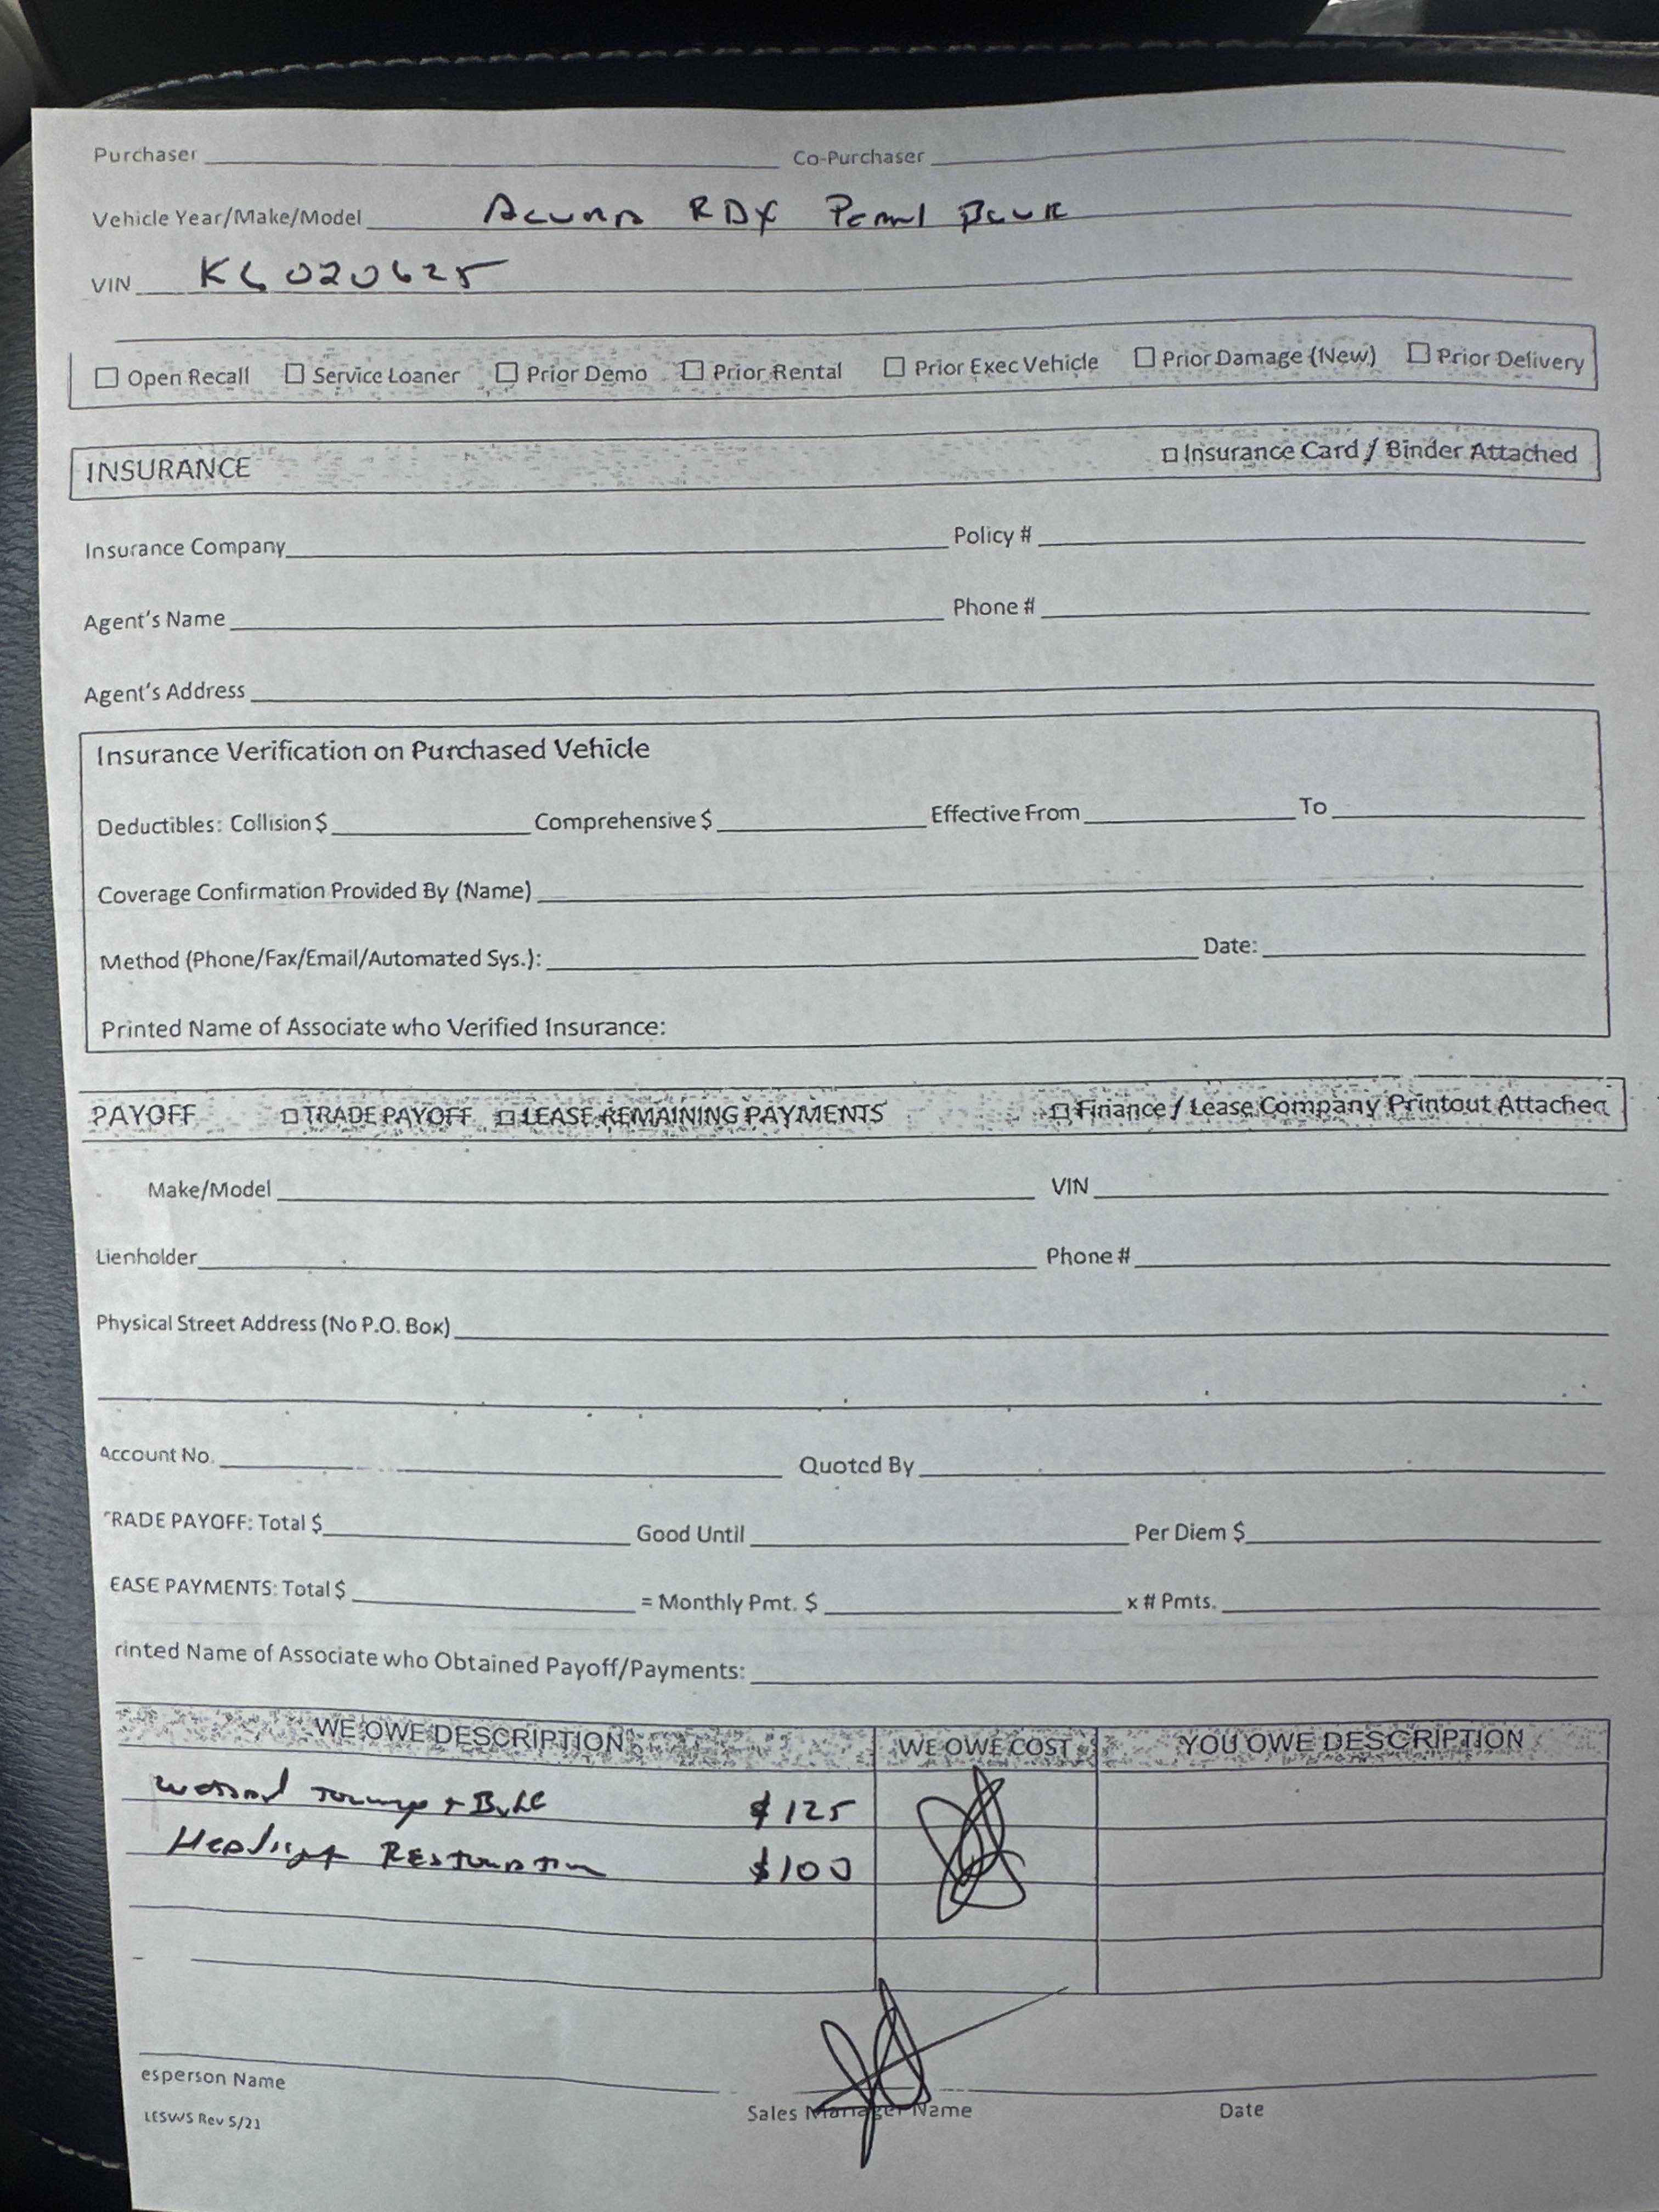 Purchaser Co-Purchaser
Vehicle Year/Make/Model Acura RDX Pearl Black
VIN KL020625
Open Recall Service Loaner Prior Demo Prior Rental Prior Exec Vehicle Prior Damage (New) Prior Delivery
INSURANCE Insurance Card / Binder Attached
Insurance Company Policy #
Agent's Name Phone #
Agent's Address
Insurance Verification on Purchased Vehicle
Deductibles: Collision $ Comprehensive $ Effective From To
Coverage Confirmation Provided By (Name)
Method (Phone/Fax/Email/Automated Sys.): Date:
Printed Name of Associate who Verified Insurance:
PAYOFF TRADE PAYOFF LEASE REMAINING PAYMENTS Finance / Lease Company Printout Attached
Make/Model VIN
Lienholder Phone #
Physical Street Address (No P.O. Box)
Account No. Quoted By
RADE PAYOFF: Total $ Good Until Per Diem $
EASE PAYMENTS: Total $ = Monthly Pmt. $ x # Pmts.
rinted Name of Associate who Obtained Payoff/Payments:
WE OWE DESCRIPTION WE OWE COST YOU OWE DESCRIPTION
$125
Headlight Restoration $100
esperson Name Sales Manager Name Date
LESWS Rev 5/21